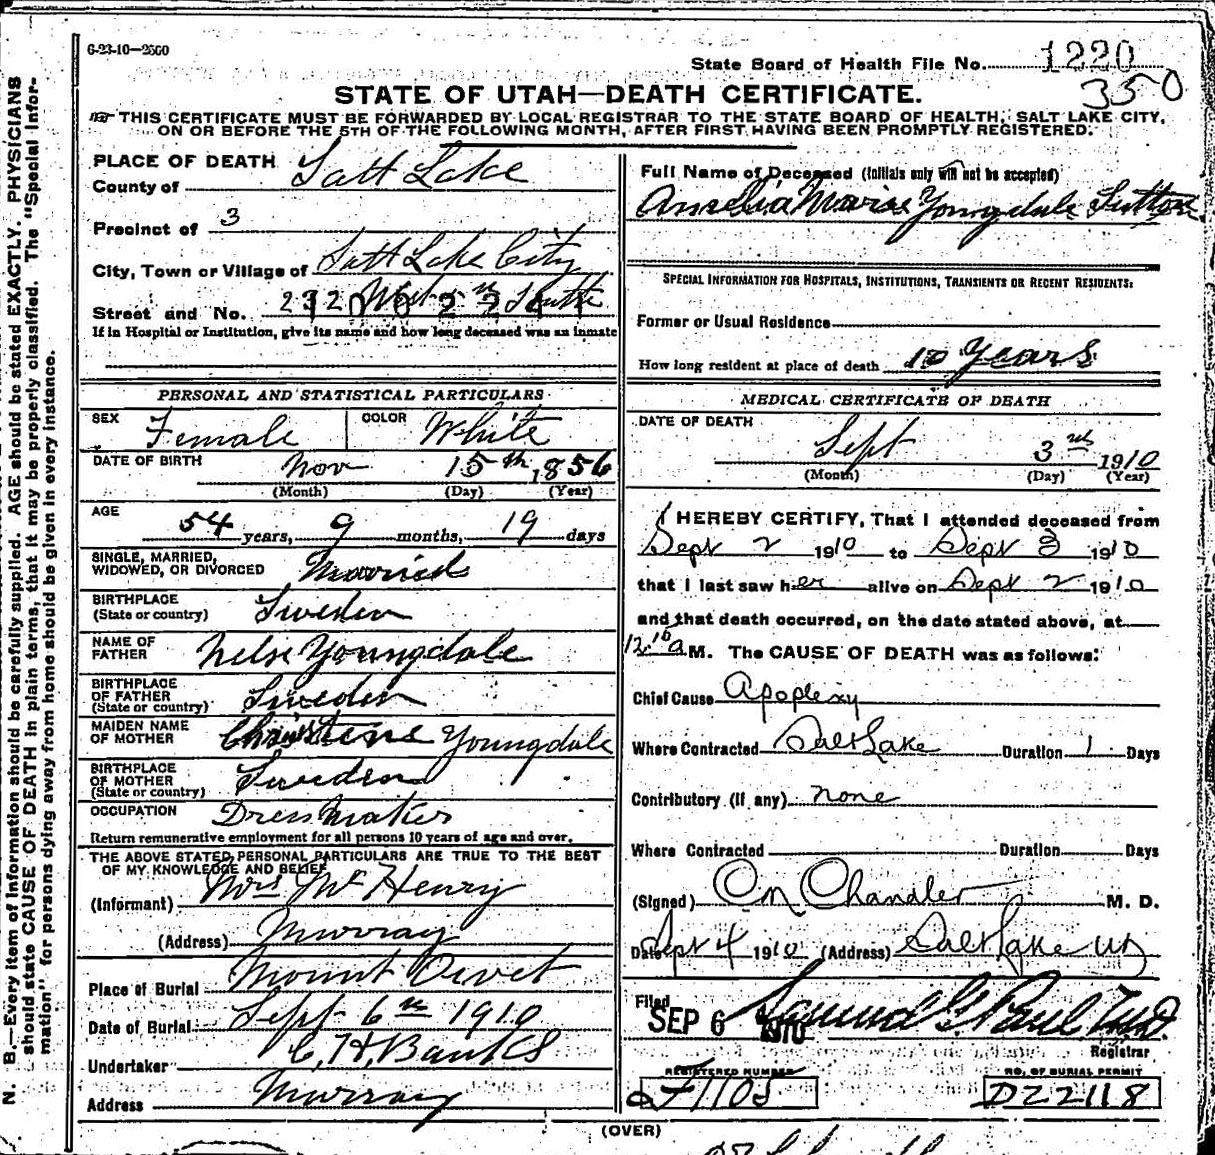 6-23-10—2500
State Board of Health File No. 1220
350
STATE OF UTAH—DEATH CERTIFICATE.
THIS CERTIFICATE MUST BE FORWARDED BY LOCAL REGISTRAR TO THE STATE BOARD OF HEALTH, SALT LAKE CITY,
ON OR BEFORE THE 5TH OF THE FOLLOWING MONTH, AFTER FIRST HAVING BEEN PROMPTLY REGISTERED.
PLACE OF DEATH
County of Salt Lake
Precinct of 3
City, Town or Village of Salt Lake City
Street and No. West South
If in Hospital or Institution, give its name and how long deceased was an inmate
PERSONAL AND STATISTICAL PARTICULARS
SEX Female COLOR White
DATE OF BIRTH Nov 15th, 1856
(Month) (Day) (Year)
AGE
54 years, 9 months, 19 days
SINGLE, MARRIED,
WIDOWED, OR DIVORCED Married
BIRTHPLACE
(State or country) Sweden
NAME OF
FATHER Nelse Youngdale
BIRTHPLACE
OF FATHER
(State or country) Sweden
MAIDEN NAME
OF MOTHER Youngdale
BIRTHPLACE
OF MOTHER
(State or country) Sweden
OCCUPATION Dress Maker
Return remunerative employment for all persons 10 years of age and over.
THE ABOVE STATED PERSONAL PARTICULARS ARE TRUE TO THE BEST
OF MY KNOWLEDGE AND BELIEF
(Informant) Mrs McHenry
(Address) Murray
Place of Burial Mount Olivet
Date of Burial Sept 6th 1910
Undertaker C, H, Banks
Address Murray
Full Name of Deceased (Initials only will not be accepted)
Amelia Marie Youngdale Sutton
SPECIAL INFORMATION FOR HOSPITALS, INSTITUTIONS, TRANSIENTS OR RECENT RESIDENTS:
Former or Usual Residence
How long resident at place of death 10 Years
MEDICAL CERTIFICATE OF DEATH
DATE OF DEATH
Sept 3rd 1910
(Month) (Day) (Year)
I HEREBY CERTIFY, That I attended deceased from
Sept 2 1910 to Sept 3 1910
that I last saw her alive on Sept 2 1910
and that death occurred, on the date stated above, at
12.10 a M. The CAUSE OF DEATH was as follows:
Chief Cause Apoplexy
Where Contracted Salt Lake Duration 1 Days
Contributory (if any) none
Where Contracted Duration Days
(Signed) C M Chandler M. D.
Date Sept 4 1910 (Address) Salt Lake Ut
Filed
SEP 6 1910 Samuel G Paul M.D.
Registrar
REGISTERED NUMBER
F1105
NO. OF BURIAL PERMIT
D22118
(OVER)
N. B.—Every item of information should be carefully supplied. AGE should be stated EXACTLY. PHYSICIANS
should state CAUSE OF DEATH in plain terms, that it may be properly classified. The "Special Infor-
mation" for persons dying away from home should be given in every instance.